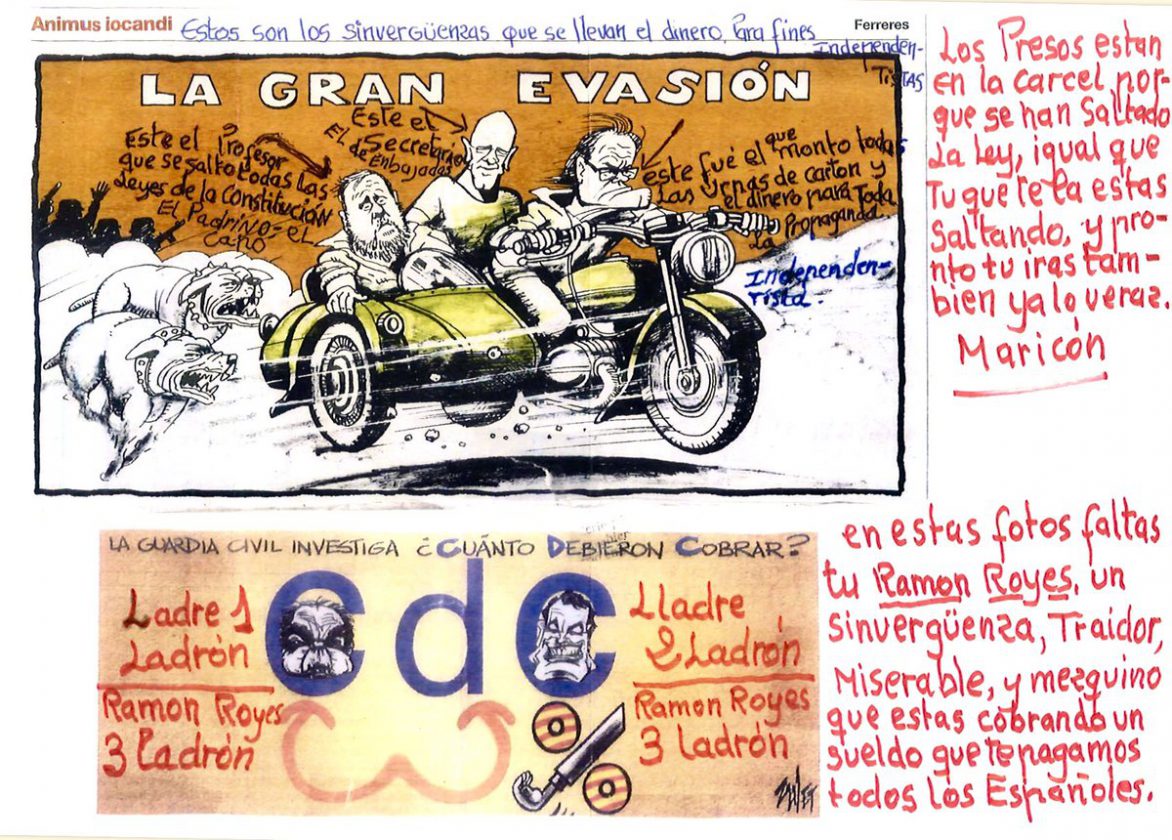 Animus iocandi
Estos son los sinvergüenzas que se llevan el dinero, Para fines
Independen-
TisTAS
Ferreres
LA GRAN EVASIÓN
Este el Profesor
que se salto todas las
Leyes de la Constitución
El Padrino = el
Capo
Este el
Secretario
El de Enbajadas
este fué el que monto todas
Las Urnas de carton y
el dinero para Toda
La Propaganda
Independen-
Tista.
Los Presos estan
en la carcel, por-
que se han Saltado
La Ley, igual que
Tu que te la estas
Saltando, y pro-
nto tu iras tam-
bien ya lo veraz.
Maricón
LA GUARDIA CIVIL INVESTIGA ¿CUÁNTO DEBIERON COBRAR?
Ladre 1
Ladrón
Ramon Royes
3 Ladrón
cdc
Lladre
2 Ladrón
Ramon Royes
3 Ladrón
en estas fotos faltas
tu Ramon Royes, un
sinvergüenza, Traidor,
Miserable, y mezquino
que estas cobrando un
sueldo que te pagamos
todos los Españoles.